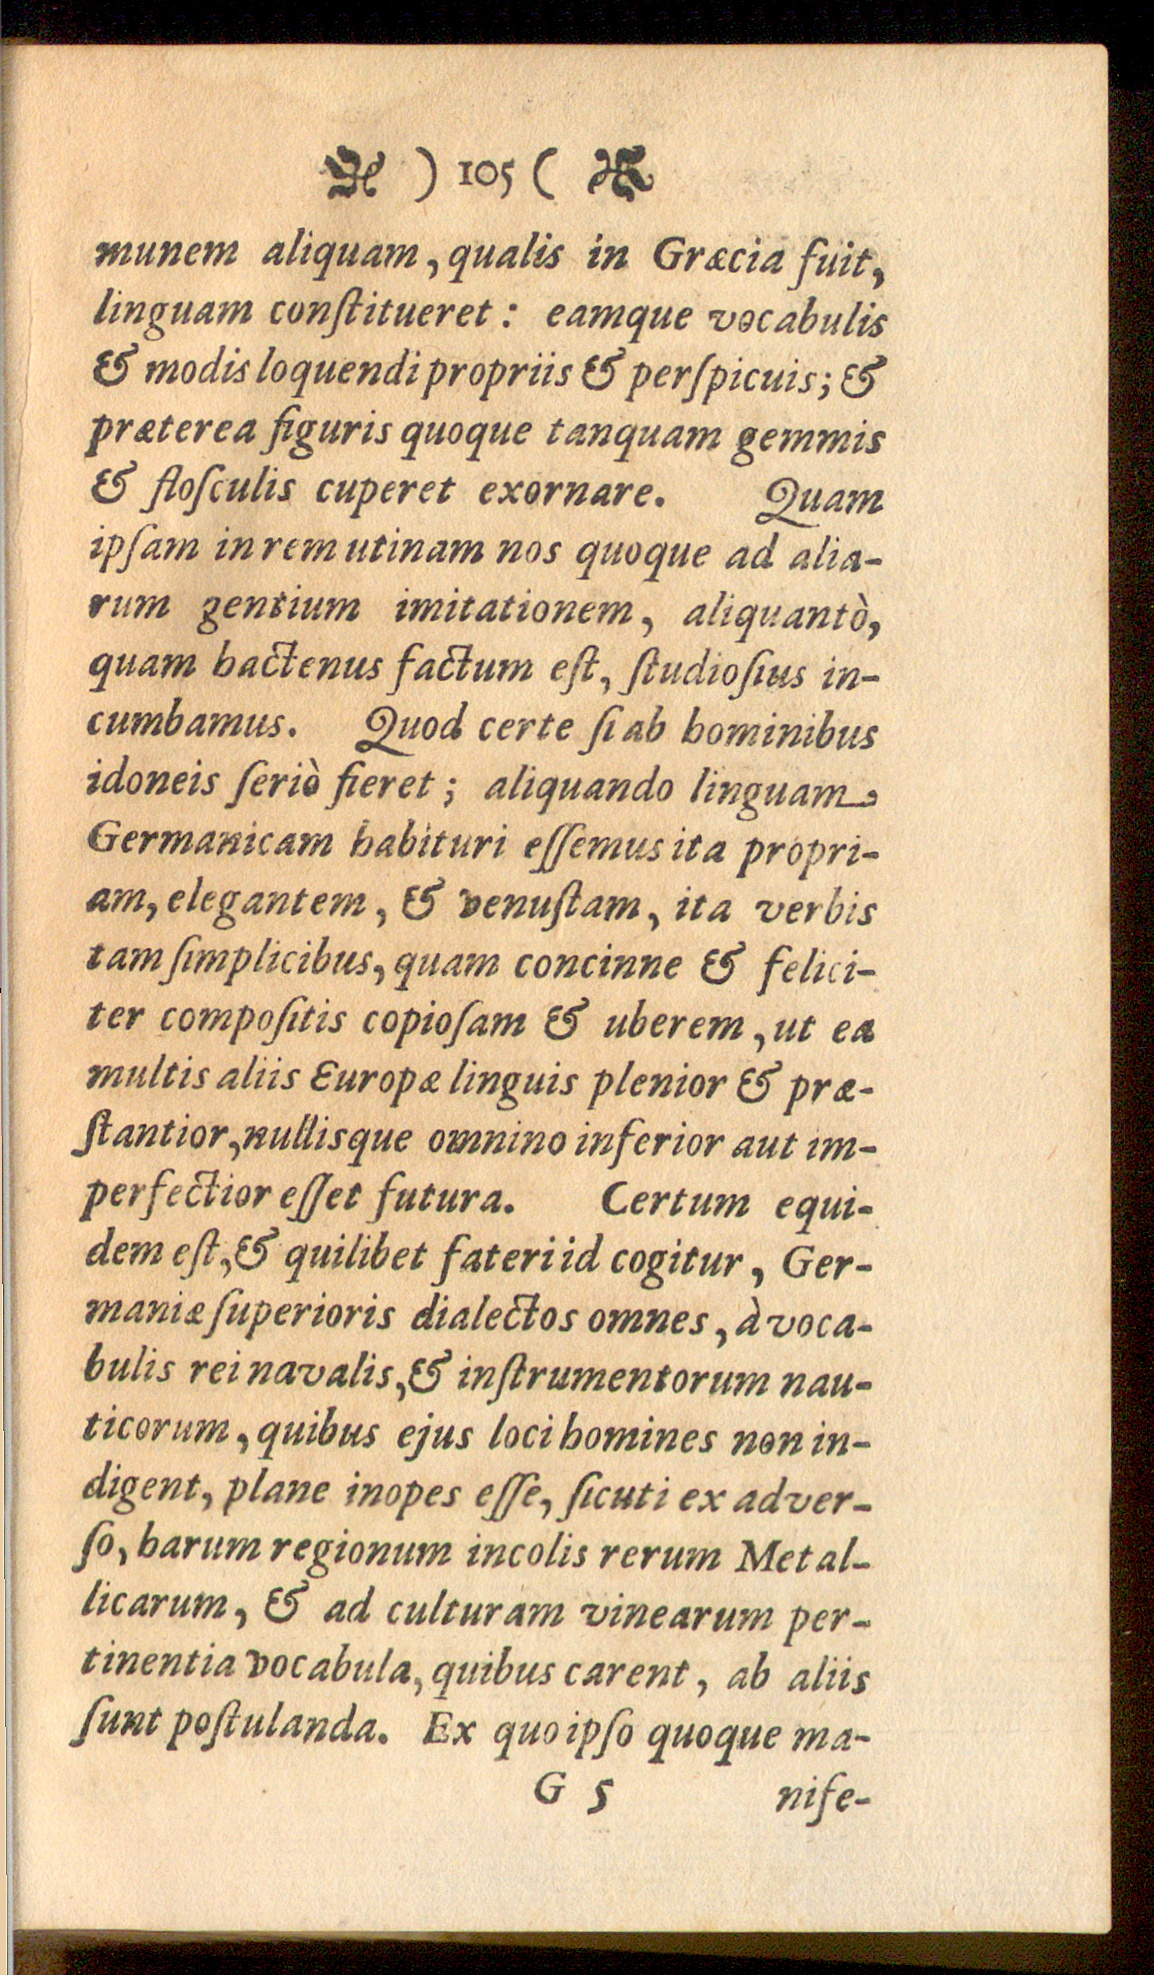 ) 105 (
munem aliquam, qualis in Græcia fuit,
linguam conſtitueret: eamque vocabulis
& modis loquendi propriis & perſpicuis; &
præterea figuris quoque tanquam gemmis
& floſculis cuperet exornare. Quam
ipſam in rem utinam nos quoque ad alia-
rum gentium imitationem, aliquantò,
quam hactenus factum eſt, ſtudioſius in-
cumbamus. Quod certe ſi ab hominibus
idoneis ſeriò fieret; aliquando linguam
Germanicam habituri eſſemus ita propri-
am, elegantem, & venuſtam, ita verbis
tam ſimplicibus, quam concinne & felici-
ter compoſitis copioſam & uberem, ut ea
multis aliis Europæ linguis plenior & præ-
ſtantior, nullisque omnino inferior aut im-
perfectior eſſet futura. Certum equi-
dem eſt, & quilibet fateri id cogitur, Ger-
maniæ ſuperioris dialectos omnes, à voca-
bulis rei navalis, & inſtrumentorum nau-
ticorum, quibus ejus loci homines non in-
digent, plane inopes eſſe, ſicuti ex adver-
ſo, harum regionum incolis rerum Metal-
licarum, & ad culturam vinearum per-
tinentia vocabula, quibus carent, ab aliis
ſunt poſtulanda. Ex quo ipſo quoque ma-
G 5 nife-